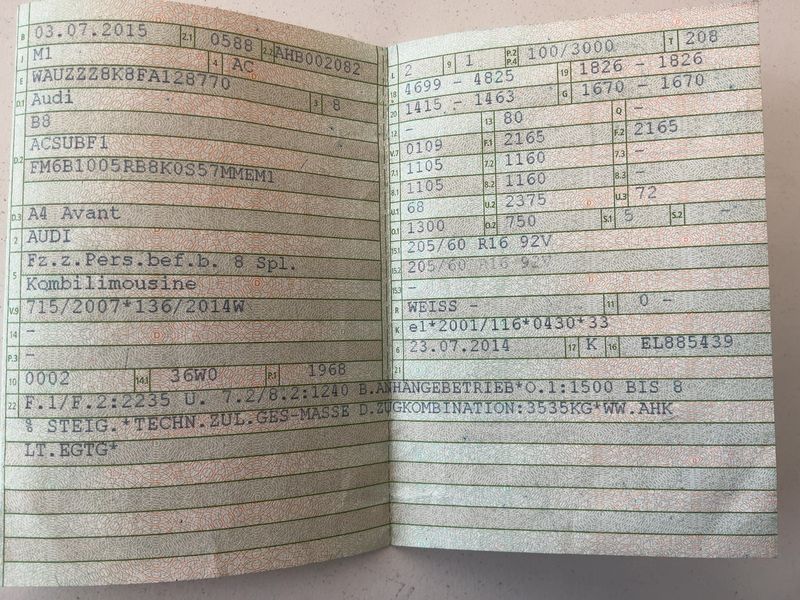 B 03.07.2015 2.1 0588 2.2 AHB002082
J M1 4 AC
E WAUZZZ8K8FA128770
D.1 Audi 3 8
B8
ACSUBF1
D.2 FM6B1005RB8K0S57MMEM1
D.3 A4 Avant
2 AUDI
Fz.z.Pers.bef.b. 8 Spl.
5 Kombilimousine
V.9 715/2007*136/2014W
14 -
P.3 -
10 0002 14.1 36W0 P.1 1968
22 F.1/F.2:2235 U. 7.2/8.2:1240 B.ANHANGEBETRIEB*O.1:1500 BIS 8
% STEIG.*TECHN.ZUL.GES-MASSE D.ZUGKOMBINATION:3535KG*WW.AHK
LT.EGTG*
L 2 9 1 P.2 P.4 100/3000 T 208
18 4699 - 4825 19 1826 - 1826
20 1415 - 1463 G 1670 - 1670
12 - 13 80 Q -
V.7 0109 F.1 2165 F.2 2165
7.1 1105 7.2 1160 7.3 -
8.1 1105 8.2 1160 8.3 -
U.1 68 U.2 2375 U.3 72
O.1 1300 O.2 750 S.1 5 S.2 -
15.1 205/60 R16 92V
15.2 205/60 R16 92V
15.3 -
R WEISS - 11 0 -
K e1*2001/116*0430*33
6 23.07.2014 17 K 16 EL885439
21